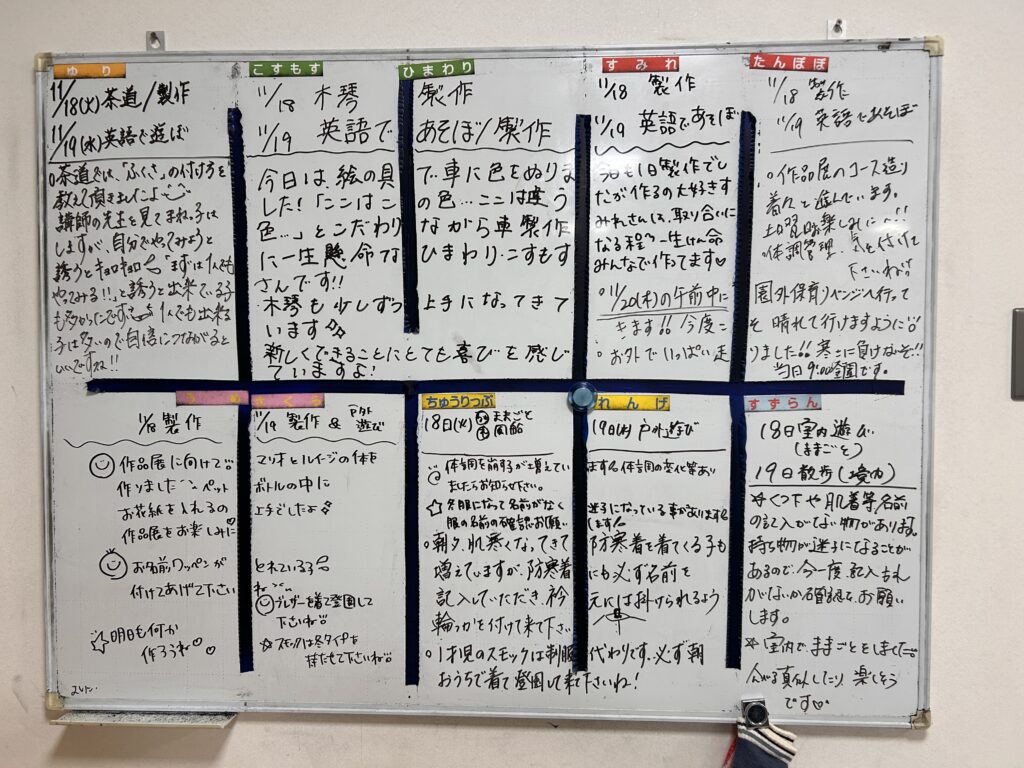 ゆり
11/18(火)茶道/製作
11/19(水)英語で遊ぼ
○茶道では、「ふくさ」の付け方を
教えて頂きましたよ
講師の先生を見てまねっ子は
しますが、自分でやってみようと
誘うとキョロキョロ「まずは1人でも
やってみる!!」と誘うと出来ている子
も多かったです 1人でも出来る
子は多いので自信につながると
いいですね!!
こすもす ひまわり
11/18 木琴 製作
11/19 英語で あそぼ/製作
今日は、絵の具で、車に色をぬりま
した!「ここはこの色…ここは違う
色…」とこだわりながら車製作
に一生懸命なひまわり・こすもす
さんです!!
木琴も少しずつ上手になってきて
います
新しくできることにとても喜びを感じ
ていますよ!
すみれ
11/18 製作
11/19 英語であそぼ
今日も1日製作でし
たが作るの大好きす
みれさんは、取り合いに
なる程 一生けん命
みんなで作ってます♡
○11/20(木)の午前中に
きます!! 今度こ
○お外でいっぱい走
たんぽぽ
11/18 製作
11/19 英語であそぼ
○作品展のコース造り
着々と進んでいます。
土曜日お楽しみに!!
体調管理 気を付けて
下さいね
園外保育リベンジへ行って
そ 晴れて行けますように
りました!! 寒さに負けないぞ!!
当日9:00登園です。
うめ
11/18 製作
作品展に向けて
作りました ペット
お花紙を入れるの
作品展をお楽しみに
お名前ワッペンが
付けてあげて下さい
☆明日も何か
作ろうね♡
さくら
11/19 製作 & 戸外遊び
マリオとルイージの体を
ボトルの中に
上手でしたよ
とれている
ね
ブレザーを着て登園して
下さいね
☆スモックは冬タイプを
持たせて下さいね
ちゅうりっぷ
18日(火) ままごと
図館
体調を崩す が増えてい
ましたらお知らせ下さい。
☆冬服になって名前がなく
服の名前の確認をお願い
○朝夕、肌寒くなってきて
増えていますが、防寒着
記入していただき、衿
輪っかを付けて来て下さい
○1才児のスモックは制服代わりです。必ず朝
おうちで着て登園して来て下さいね!
れんげ
19日(水)戸外遊び
ます 体調の変化等あり
迷子になっている事があります
します
防寒着を着てくる子も
にも必ず名前を
元には掛けられるよう
すずらん
18日室内遊び
(ままごと)
19日散歩(園内)
☆くつ下や肌着等、名前
の記入がない物があります。
持ち物が迷子になることが
あるので、今一度、記入もれ
がないか確認を、お願い
します。
☆室内で、ままごとをしました
真似したり、楽しそう
です♡